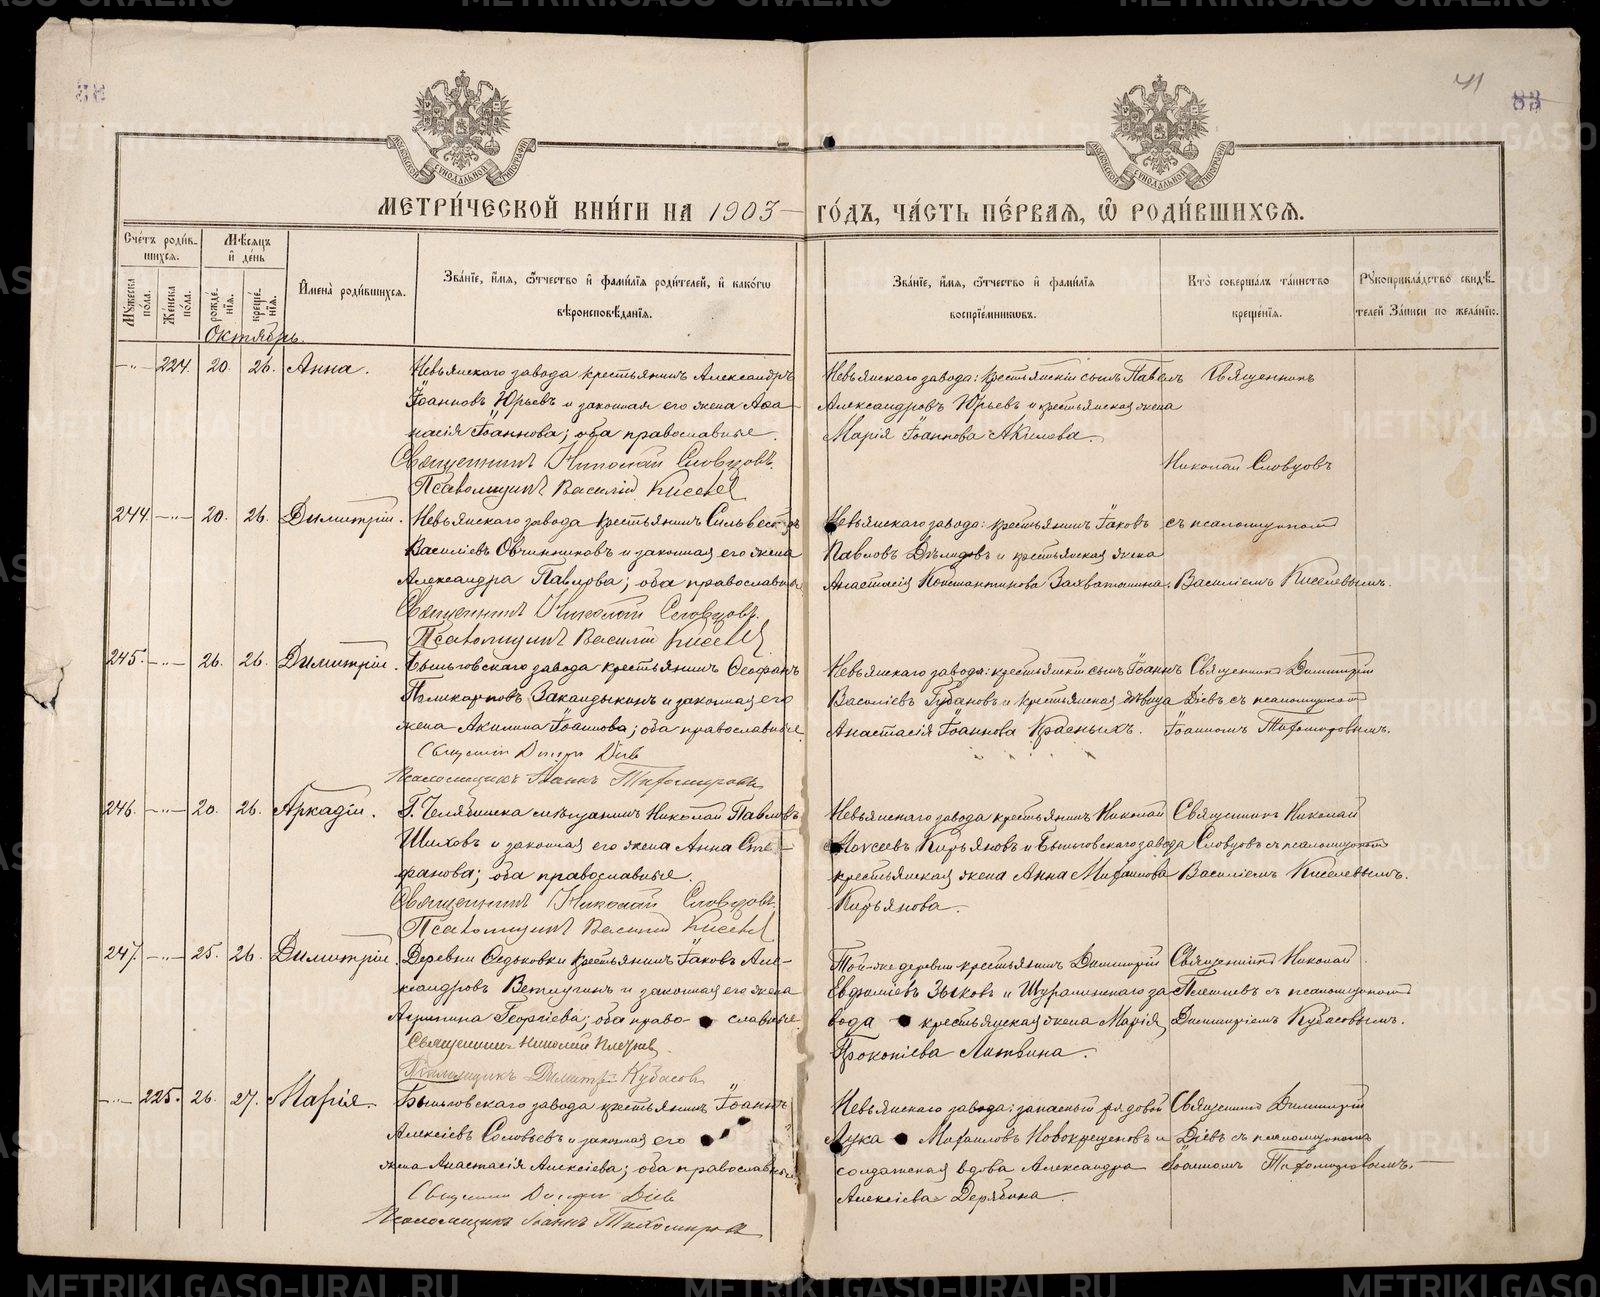 41
83
МЕТРИ́ЧЕСКОЙ КНИ́ГИ НА 1903 ГО́ДЪ, ЧА́СТЬ ПЕ́РВАЯ, Ѿ РОДИ́ВШИХСЯ.
Сче́тъ роди́вшихся.
Мꙋ́жеска по́ла.
Же́нска по́ла.
Мѣ́сяцъ и҆ де́нь
рожде́нїя.
креще́нїя.
И҆мена̀ роди́вшихся.
Зва́нїе, и҆́мя, ѻ҆́тчество и҆ фами́лїя роди́телей, и҆ како́гѡ
вѣроисповѣ́данїя.
Зва́нїе, и҆́мя, ѻ҆́тчество и҆ фами́лїя
воспрїе́мниковъ.
Кто̀ соверша́лъ та́инство
креще́нїя.
Рꙋкоприкла́дство свидѣ́-
телей за́писи по жела́нїю.
Октябрь.
-"- 224. 20. 26. Анна.
Невьянскаго завода крестьянинъ Александръ
Іоанновъ Юрьевъ и законная его жена Ана-
насія Іоаннова; оба православные.
Священникъ Николай Словцовъ.
Псаломщикъ Василій Киселев
Невьянскаго завода: крестьянскій сынъ Павелъ
Александровъ Юрьевъ и крестьянская жена
Марія Іоаннова Акилева.
Священникъ
Николай Словцовъ
244. -"- 20. 26. Димитрій.
Невьянскаго завода крестьянинъ Сильвестръ
Василіевъ Овчинниковъ и законная его жена
Александра Павлова; оба православные
Священникъ Николай Словцовъ.
Псаломщикъ Василій Киселев
Невьянскаго завода: крестьянинъ Іаковъ
Павловъ Дѣлидовъ и крестьянская жена
Анастасія Константинова Захваткина.
съ псаломщикомъ
Василіемъ Киселевымъ.
245. -"- 26. 26. Димитрій.
Быньговскаго завода крестьянинъ Ѳеофанъ
Поликарповъ Закандыкинъ и законная его
жена Акилина Іоаннова; оба православные.
Священникъ Дмитрій Діевъ
Псаломщикъ Іоаннъ Тихомировъ
Невьянскаго завода: крестьянскій сынъ Іоаннъ
Василіевъ Губановъ и крестьянская дѣвица
Анастасія Іоаннова Красныхъ.
Священникъ Димитрій
Діевъ съ псаломщикомъ
Іоанномъ Тихомировымъ.
246. -"- 20. 26. Аркадій.
Г. Челябинска мѣщанинъ Николай Павловъ
Шиховъ и законная его жена Анна Сте-
фанова; оба православные.
Священникъ Николай Словцовъ.
Псаломщикъ Василій Киселев
Невьянскаго завода крестьянинъ Николай
Моисеевъ Кирьяновъ и Быньговскаго завода
крестьянская жена Анна Михаилова
Кирьянова.
Священникъ Николай
Словцовъ съ псаломщикомъ
Василіемъ Киселевымъ.
247. -"- 25. 26. Димитрій.
Деревни Ѳедьковки крестьянинъ Іаковъ Але-
ксандровъ Ветлугинъ и законная его жена
Агрипина Георгіева; оба право- славные.
Священникъ Николай Плешев
Псаломщикъ Димитрій Кубасовъ
Той-же деревни крестьянинъ Димитрій
Евфиміевъ Зыковъ и Шуралинскаго за
вода крестьянская жена Марія
Прокопіева Литвина.
Священникъ Николай
Плешевъ съ псаломщикомъ
Димитріемъ Кубасовымъ.
-"- 225. 26. 27. Марія.
Быньговскаго завода крестьянинъ Іоаннъ
Алексіевъ Соловьевъ и законная его
жена Анастасія Алексіева; оба православные.
Священникъ Дмитрій Діевъ
Псаломщикъ Іоаннъ Тихомировъ
Невьянскаго завода: запасный рядовой
Лука Михаиловъ Новокрещеновъ и
солдатская вдова Александра
Алексіева Дерябина.
Священникъ Димитрій
Діевъ съ псаломщикомъ
Іоанномъ Тихомировымъ.
METRIKI.GASO-URAL.RU